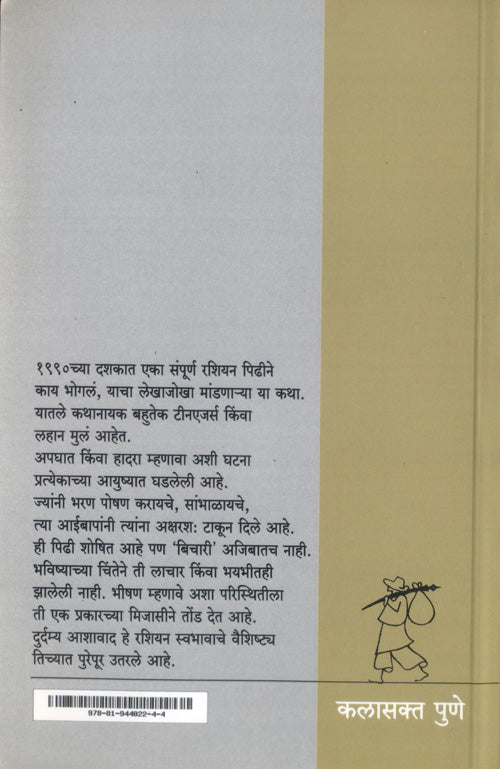 १९९०च्या दशकात एका संपूर्ण रशियन पिढीने
काय भोगलं, याचा लेखाजोखा मांडणाऱ्या या कथा.
यातले कथानायक बहुतेक टीनएजर्स किंवा
लहान मुलं आहेत.
अपघात किंवा हादरा म्हणावा अशी घटना
प्रत्येकाच्या आयुष्यात घडलेली आहे.
ज्यांनी भरण पोषण करायचे, सांभाळायचे,
त्या आईबापांनी त्यांना अक्षरशः टाकून दिले आहे.
ही पिढी शोषित आहे पण ‘बिचारी’ अजिबातच नाही.
भविष्याच्या चिंतेने ती लाचार किंवा भयभीतही
झालेली नाही. भीषण म्हणावे अशा परिस्थितीला
ती एक प्रकारच्या मिजासीने तोंड देत आहे.
दुर्दम्य आशावाद हे रशियन स्वभावाचे वैशिष्ट्य
तिच्यात पुरेपूर उतरले आहे.
978-81-944822-4-4
कलासक्त पुणे